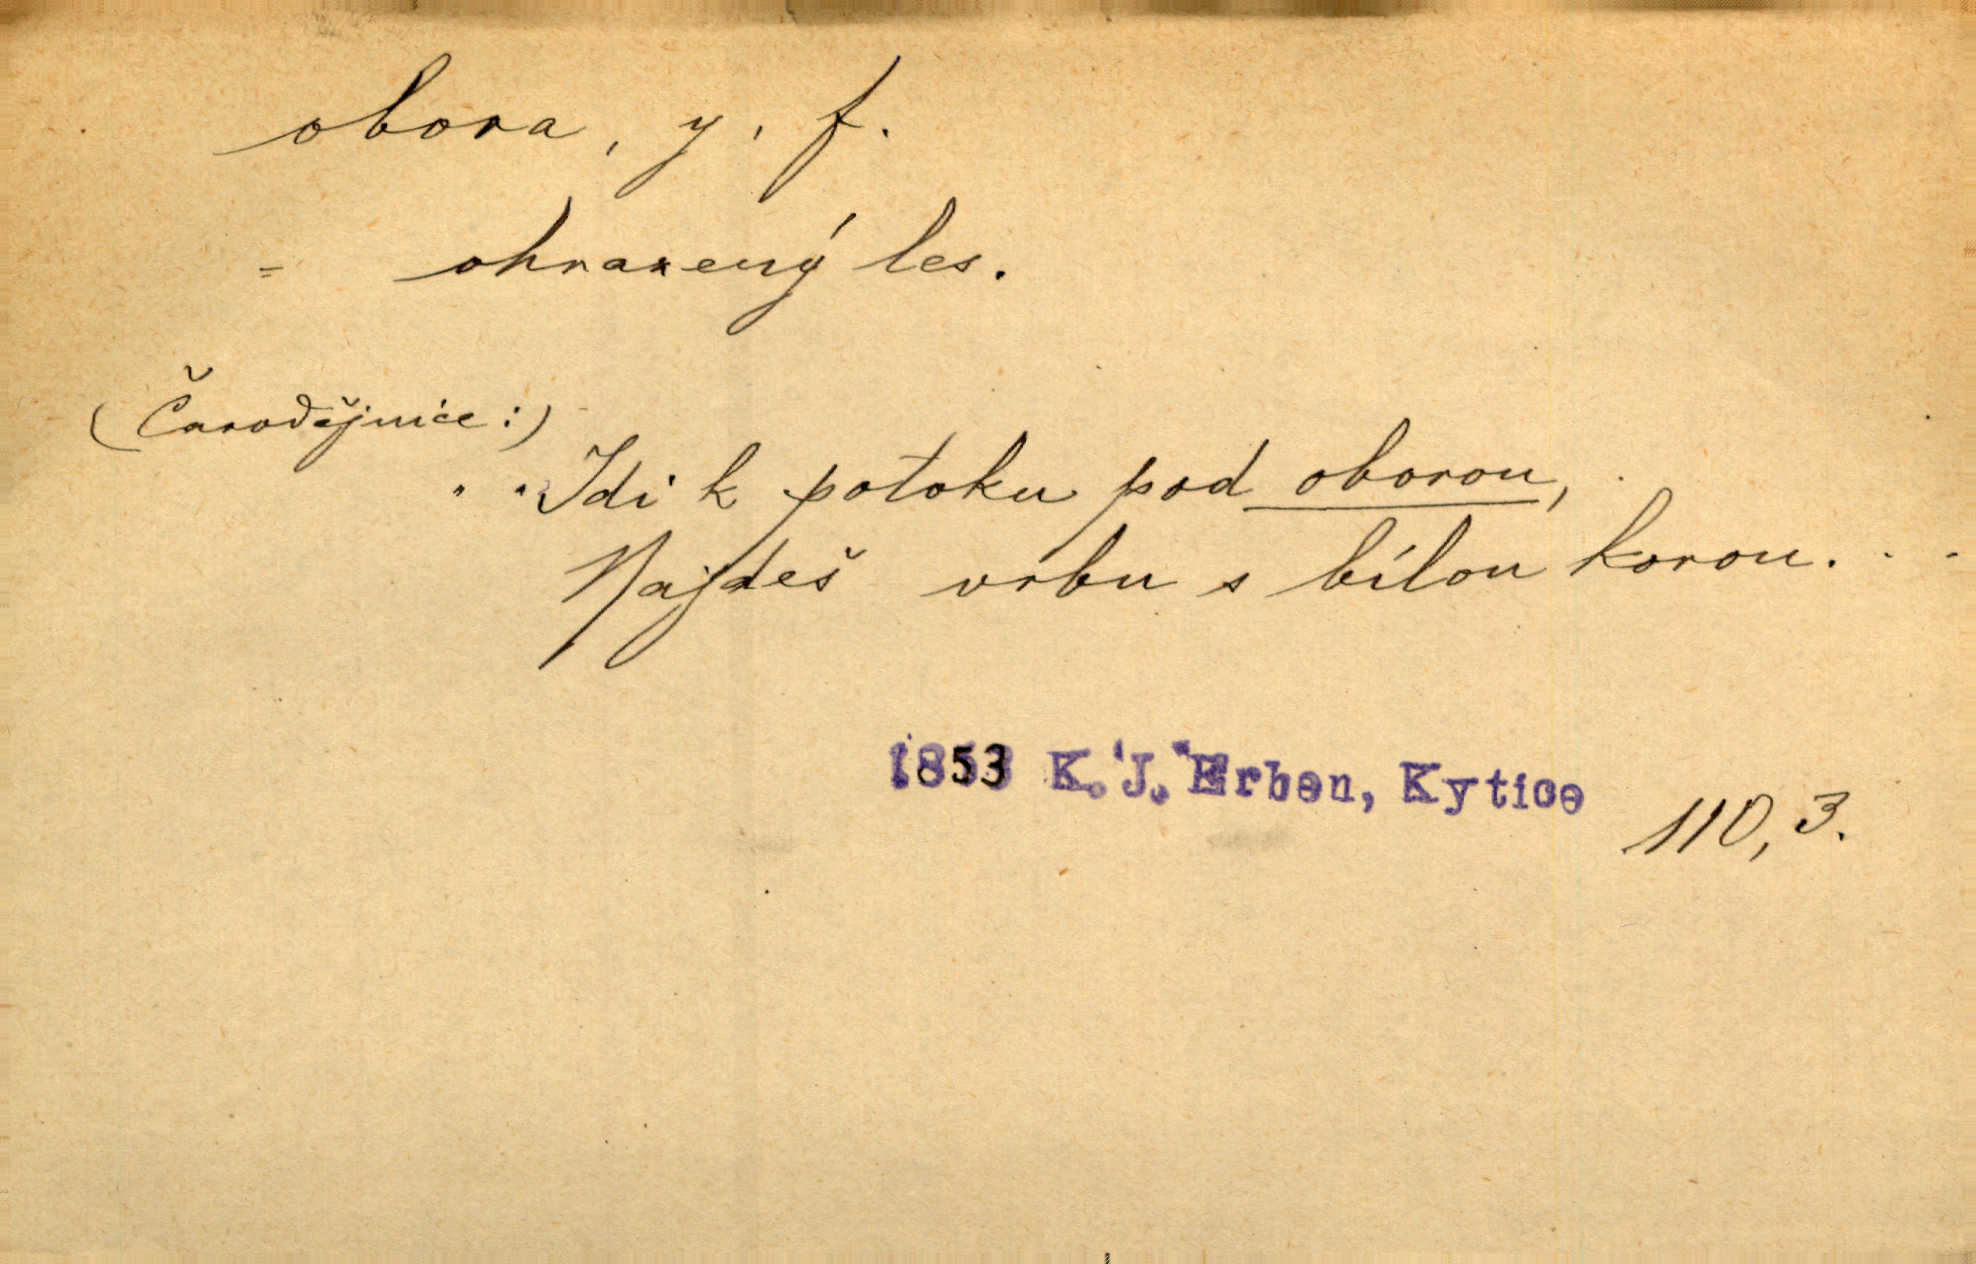 obora, y, f.
= ohrazený les.
(Čarodějnice:)
. . Jdi k potoku pod oborou,
Najdeš vrbu s bílou korou. . .
1853 K. J. Erben, Kytice
110, 3.